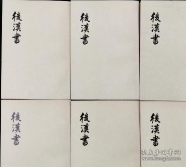 後漢書
後漢書
後漢書
後漢書
後漢書
後漢書